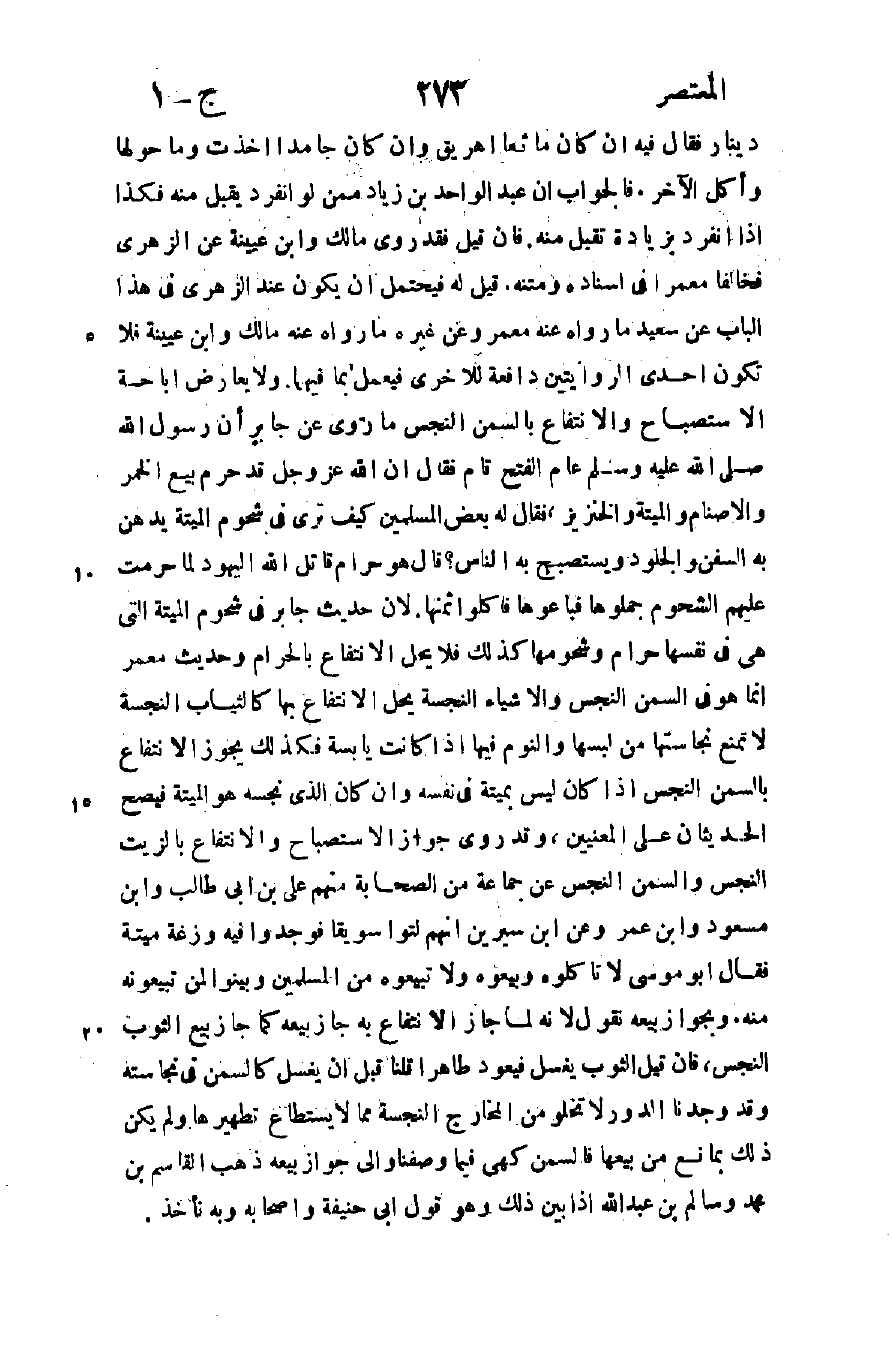 المعتصر ٢٧٣ ج - ١
دينار فقال فيه ان كان مائعا اهريق وان كان جامدا اخذت وما حولها
وأكل الآخر . فالجواب ان عبد الواحد بن زياد ممن لو انفرد يقبل منه فكذا
اذا انفرد بزيادة تقبل منه . فان قيل فقد روى مالك وابن عيينة عن الزهرى
فخالفا معمرا فى اسناده ومتنه . قيل له فيحتمل ان يكون عند الزهرى فى هذا
الباب عن سعيد ما رواه عنه معمر وعن غيره ما رواه عنه مالك وابن عيينة فلا ٥
تكون احدى الروايتين دافعة للاخرى فيعمل بما فيها . ولا يعارض اباحة
الاستصباح والانتفاع بالسمن النجس ما روى عن جابر أن رسول الله
صلى الله عليه وسلم عام الفتح قام فقال ان الله عز وجل قد حرم بيع الخمر
والاصنام والميتة والخنزير ، فقال له بعض المسلمين كيف ترى فى شحوم الميتة يدهن
به السفن والجلود ويستصبح به الناس ؟ قال هو حرام قاتل الله اليهود لما حرمت ١٠
عليهم الشحوم جملوها فباعوها فاكلوا ثمنها . لان حديث جابر فى شحوم الميتة التى
هى فى نفسها حرام وشحومها كذلك فلا يحل الانتفاع بالحرام وحديث معمر
انما هو فى السمن النجس والاشياء النجسة يحل الانتفاع بها كالثياب النجسة
لا تمنع نجاستها من لبسها والنوم فيها اذا كانت يابسة فكذلك يجوز الانتفاع
بالسمن النجس اذا كان ليس بميتة فى نفسه وان كان الذى نجسه هو الميتة فيصح ١٥
الحديثان على المعنيين ، وقد روى جواز الاستصباح والانتفاع بالزيت
النجس والسمن النجس عن جماعة من الصحابة منهم على بن ابى طالب وابن
مسعود وابن عمر وعن ابن سيرين انهم لتوا سويقا فوجدوا فيه وزغة ميتة
فقال ابو موسى لا تاكلوه وبيعوه ولا تبيعوه من المسلمين وبينوا لمن تبيعونه
منه . وبجواز بيعه نقول لانه لما جاز الانتفاع به جاز بيعه كما جاز بيع الثوب ٢٠
النجس ، فان قيل الثوب يغسل فيعود طاهرا قلنا قبل ان يغسل كالسمن فى نجاسته
وقد وجدنا الدور لا تخلو من المخارج النجسة مما لا يستطاع تطهيرها ولم يكن
ذلك بمانع من بيعها فالسمن كهى فيما وصفنا والى جواز بيعه ذهب القاسم بن
محمد وسالم بن عبدالله اذا بين ذلك وهو قول ابى حنيفة واصحابه وبه نأخذ .